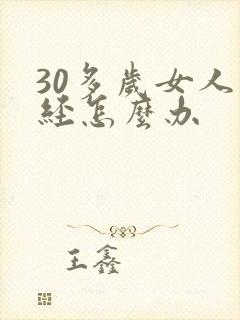 30多歲女人
經怎麼办
王鑫